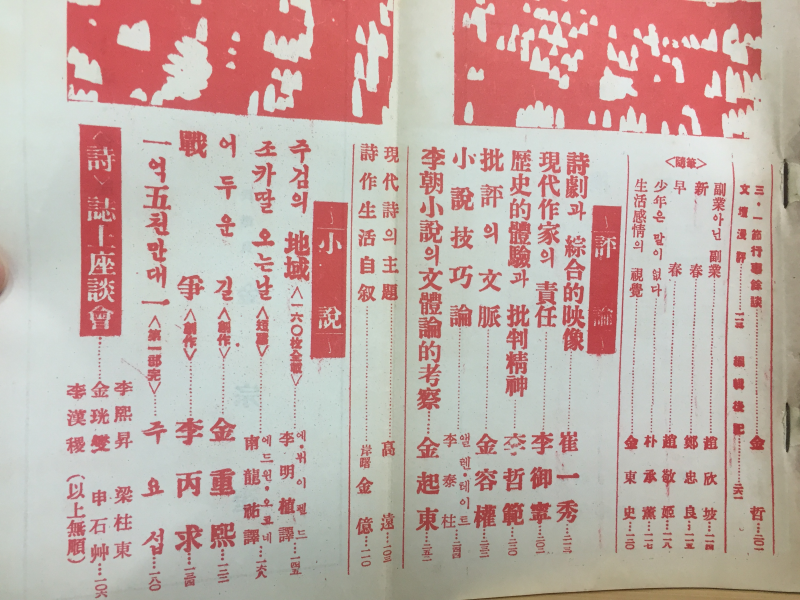 三·一節行事餘談……金哲…二〇一
文壇淺評……二二三 編輯後記……二六二
<隨筆>
副業아닌 副業……趙欣坡…二一四
新春……鄭忠良…二一五
早春……趙敬姬…二一八
少年은 말이 없다……朴承薰…二一七
生活感情의 視覺……金東史…二二〇
評論
詩劇과 綜合的映像……崔一秀…二一三
現代作家의 責任……李御寧…二〇二
歷史的體驗과 批判精神……李哲範…二三〇
批評의 文脈……金容權…二三二
小說技巧論……앨렌·테이트 李泰柱…二四四
李朝小說의 文體論的考察……金起東…二五一
現代詩의 主題……高遠…一〇三
詩作生活自叙……岸曙 金億…一一〇
小說
주검의 地域<一六〇枚全載>……에·뷔이젤드 李明植譯…一四五
조카딸 오는날<短篇>……에드윈·오코네 南龍祐譯…一六八
어두운 길<創作>……金重熙…一二二
戰爭<創作>……李丙求…一三四
一억五천만대一<第一部完>……주요섭…一八〇
<詩>誌上座談會……李熙昇 梁柱東
金珖燮 申石艸…一〇六
李漢稷 (以上無順)